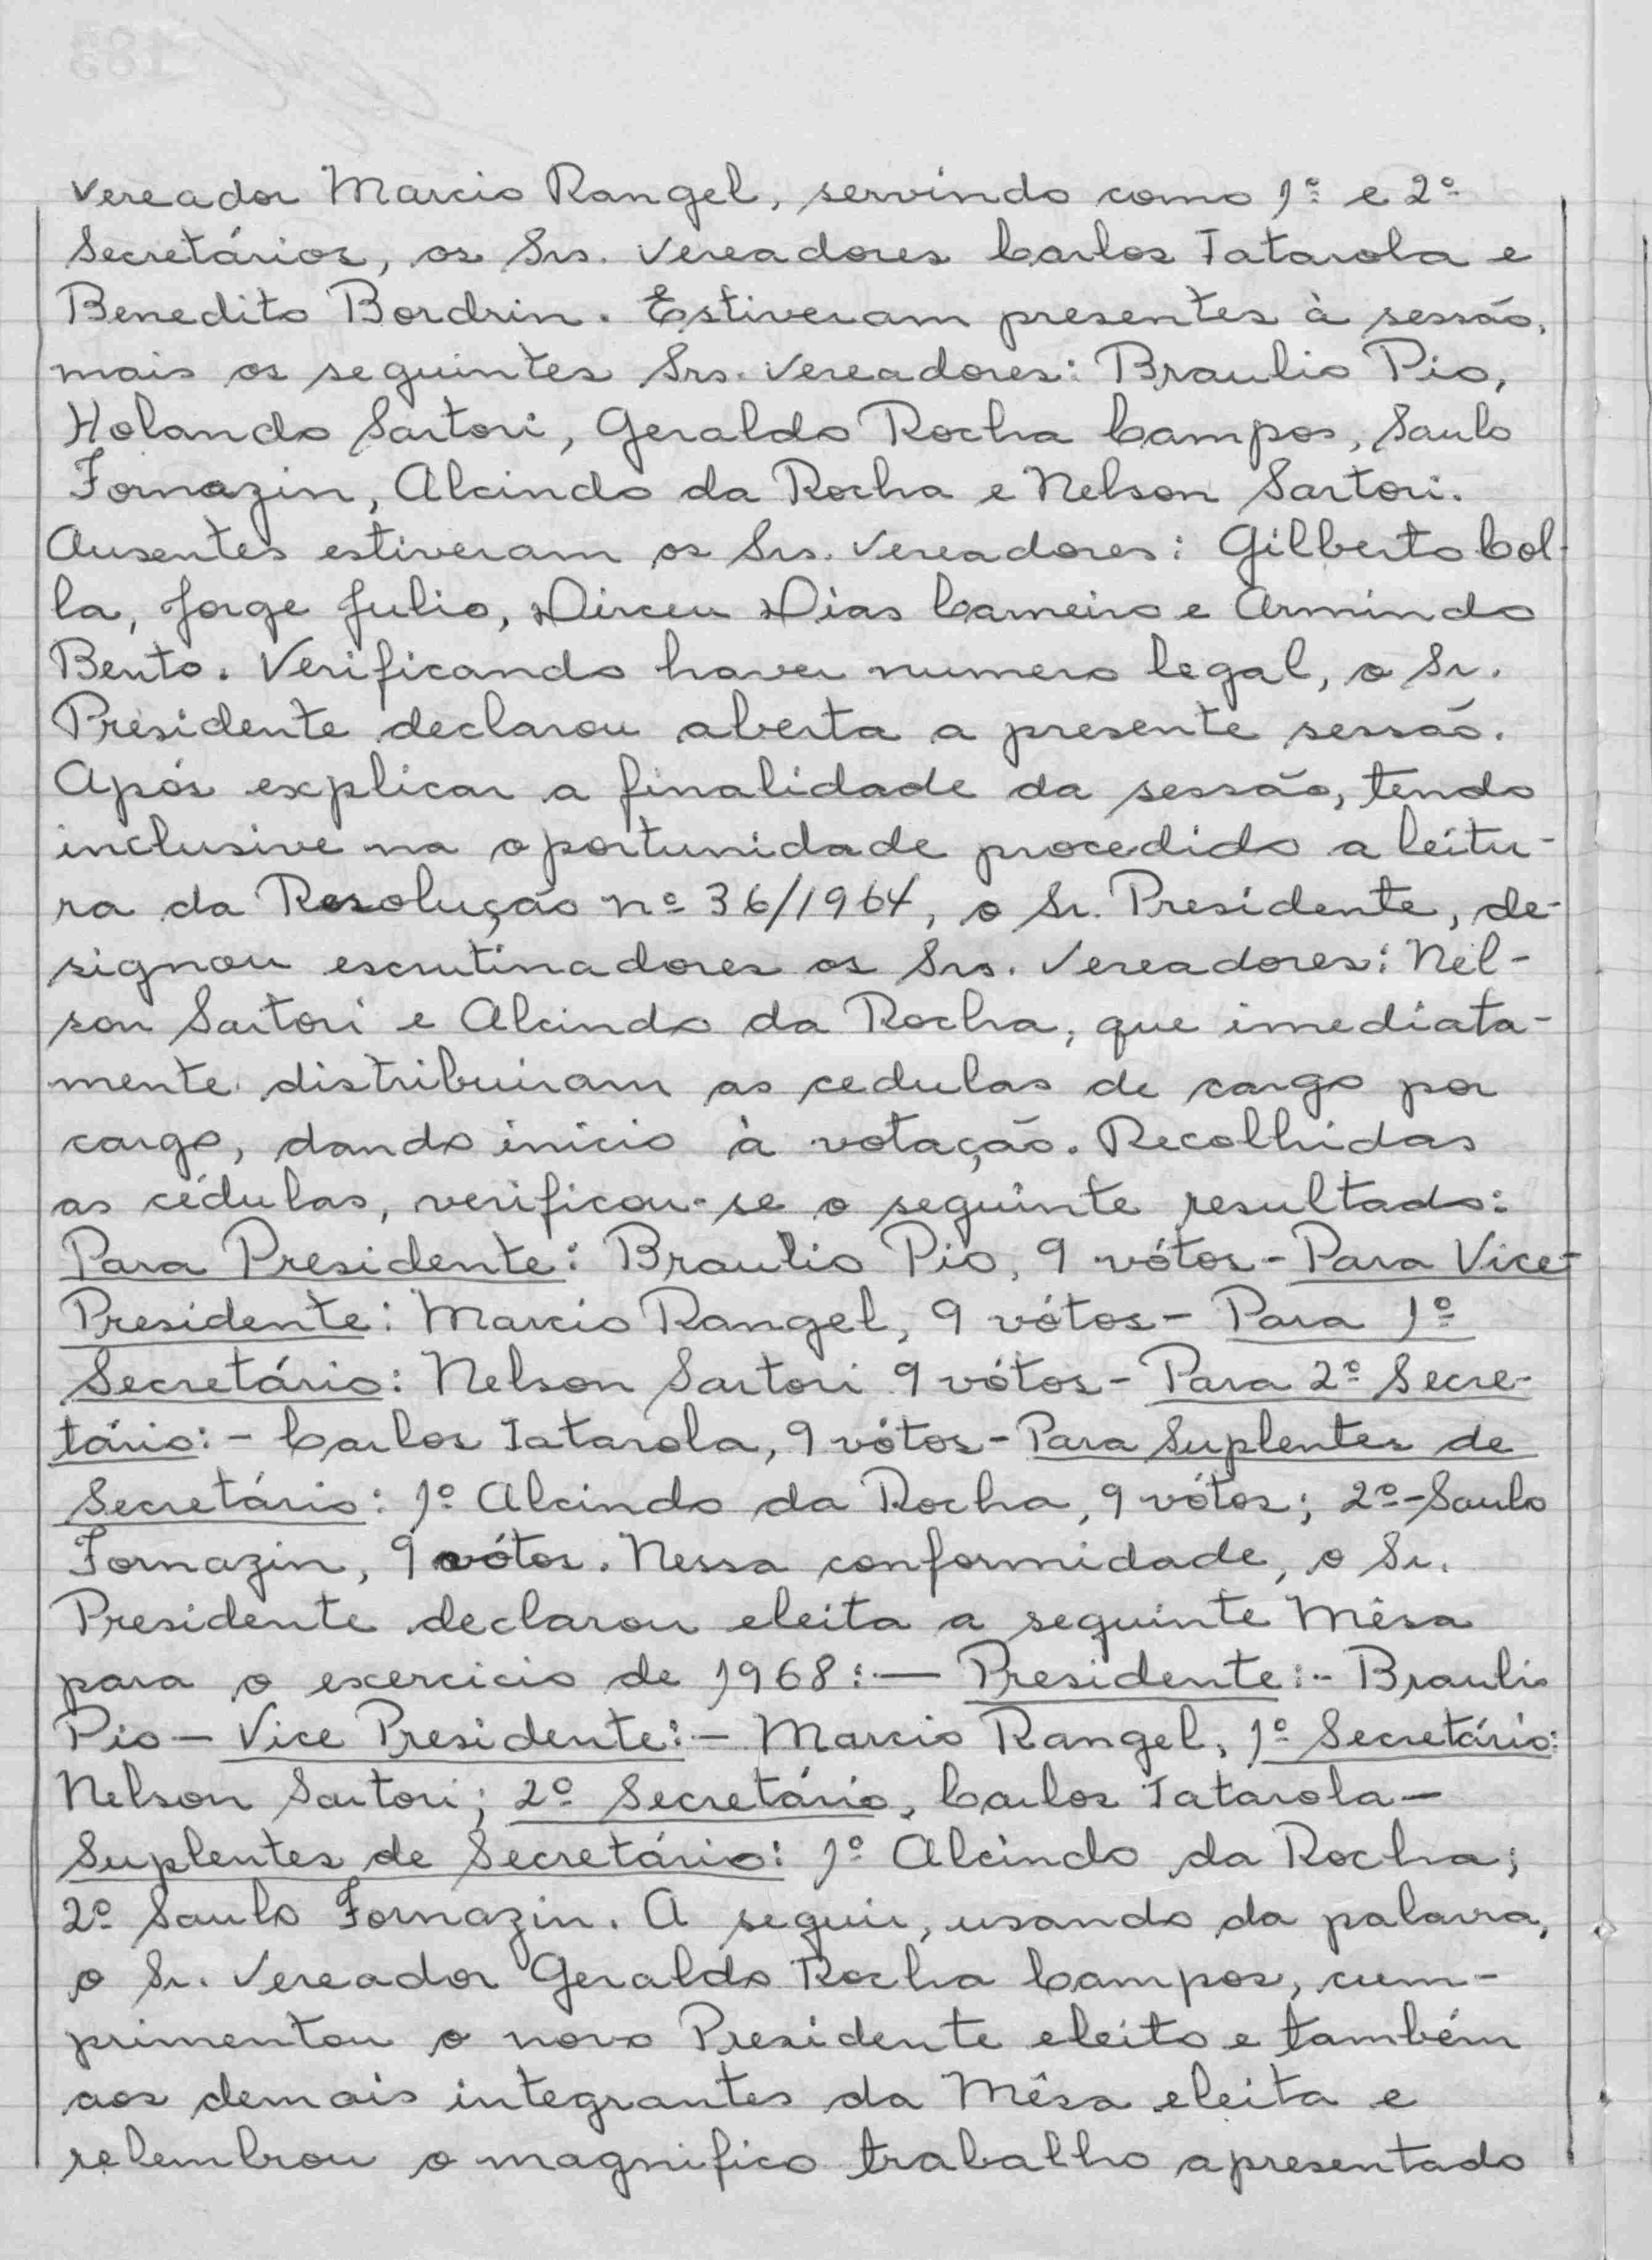 Vereador Marcio Rangel, servindo como 1º e 2º
Secretários, os Srs. Vereadores Carlos Tatarola e
Benedito Bordrin. Estiveram presentes à sessão,
mais os seguintes Srs. Vereadores: Braulio Pio,
Holando Sartori, Geraldo Rocha Campos, Saulo
Fornazin, Alcindo da Rocha e Nelson Sartori.
Ausentes estiveram os Srs. Vereadores: Gilberto Col-
la, Jorge Julio, Dirceu Dias Carneiro e Armindo
Bento. Verificando haver numero legal, o Sr.
Presidente declarou aberta a presente sessão.
Após explicar a finalidade da sessão, tendo
inclusive na oportunidade procedido a leitu-
ra da Resolução nº 36/1964, o Sr. Presidente, de-
signou escrutinadores os Srs. Vereadores: Nel-
son Sartori e Alcindo da Rocha, que imediata-
mente distribuiram as cedulas de cargo por
cargo, dando inicio à votação. Recolhidas
as cédulas, verificou-se o seguinte resultado:
Para Presidente: Braulio Pio, 9 vótos - Para Vice-
Presidente: Marcio Rangel, 9 vótos - Para 1º
Secretário: Nelson Sartori 9 vótos - Para 2º Secre-
tário: - Carlos Tatarola, 9 vótos - Para Suplentes de
Secretário: 1º Alcindo da Rocha, 9 vótos; 2º - Saulo
Fornazin, 9 vótos. Nessa conformidade, o Sr.
Presidente declarou eleita a seguinte Mêsa
para o exercicio de 1968: — Presidente: - Braulio
Pio — Vice Presidente: — Marcio Rangel, 1º Secretário:
Nelson Sartori; 2º Secretário, Carlos Tatarola —
Suplentes de Secretário: 1º Alcindo da Rocha;
2º Saulo Fornazin. A seguir, usando da palavra,
o Sr. Vereador Geraldo Rocha Campos, cum-
primentou o novo Presidente eleito e também
aos demais integrantes da Mêsa eleita e
relembrou o magnifico trabalho apresentado